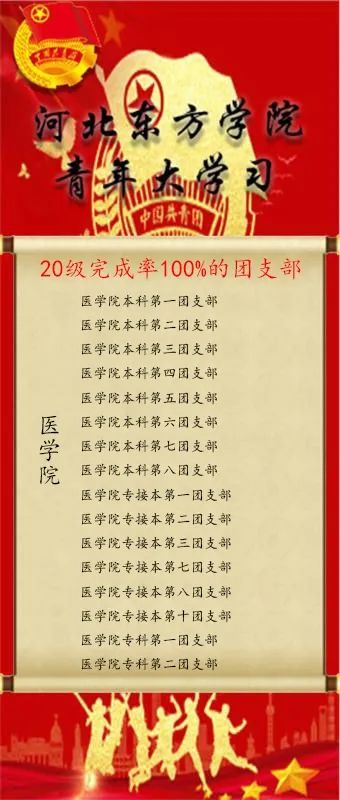 河北东方学院
青年大学习
中国共青团
20级完成率100%的团支部
医学院
医学院本科第一团支部
医学院本科第二团支部
医学院本科第三团支部
医学院本科第四团支部
医学院本科第五团支部
医学院本科第六团支部
医学院本科第七团支部
医学院本科第八团支部
医学院专接本第一团支部
医学院专接本第二团支部
医学院专接本第三团支部
医学院专接本第七团支部
医学院专接本第八团支部
医学院专接本第十团支部
医学院专科第一团支部
医学院专科第二团支部